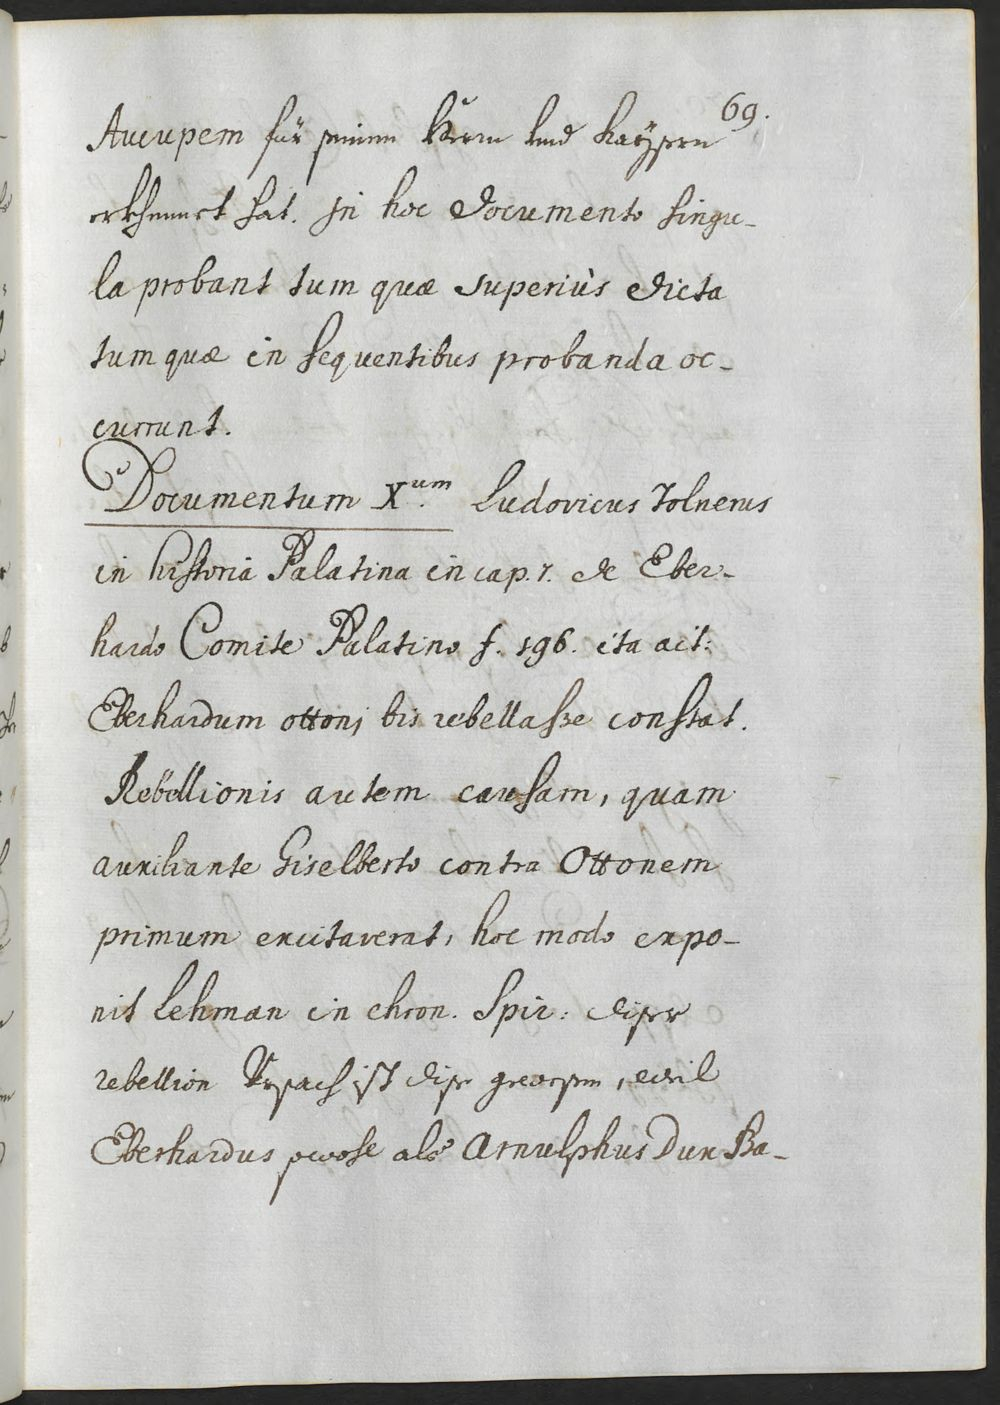 69.
Aucupem für seinen Herrn und Kaÿsern
erkhennet hat. In hoc Documento singu-
la probant tum quæ superiùs dicta
tum quæ in sequentibus probanda oc-
currunt.
Documentum X.um Ludovicus Tolnerus
in historia Palatina in cap. 7. de Eber-
hardo Comite Palatino f. 196. ita ait:
Eberhardum ottoni bis rebellasse constat.
Rebellionis autem causam, quam
auxiliante Giselberto contra Ottonem
primum excitaverat, hoc modo expo-
nit Lehman in chron. Spir: diser
rebellion Ursach ist dise gewesen, weil
Eberhardus sowohl als Arnulphus Dux Ba-